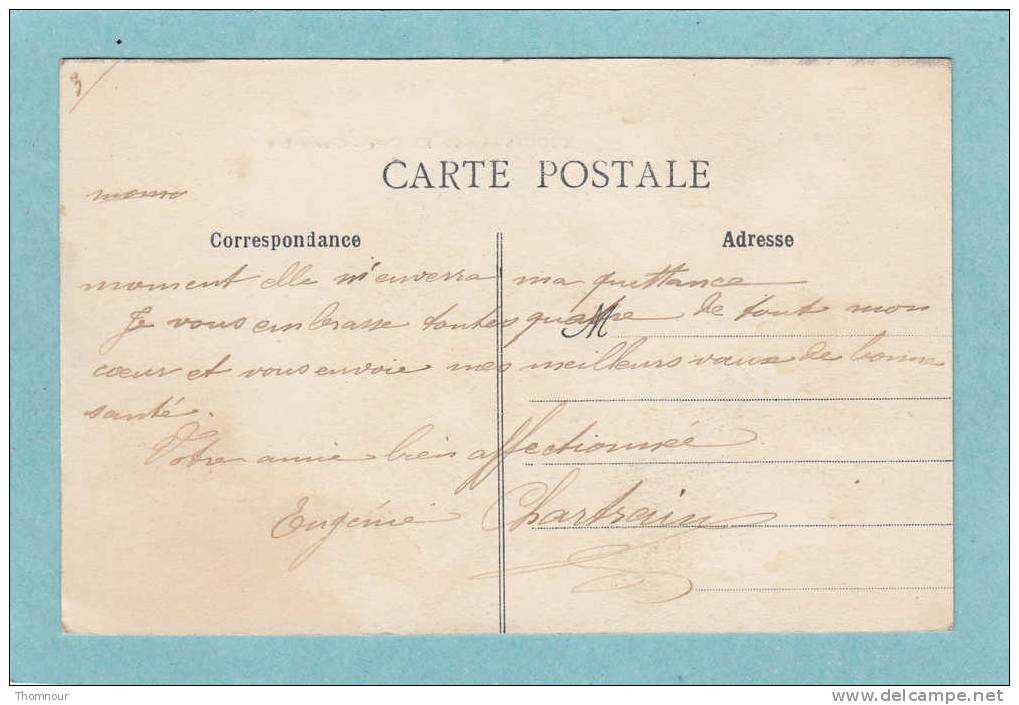 3
CARTE POSTALE
Correspondance
Adresse
moment elle m'enverra ma quittance
Je vous embrasse toutes quatre de tout mon
M
cœur et vous envoie mes meilleurs vœux de bonne
santé.
Votre amie bien affectionnée
Eugénie Chartrain
Thomnour
www.delcampe.net